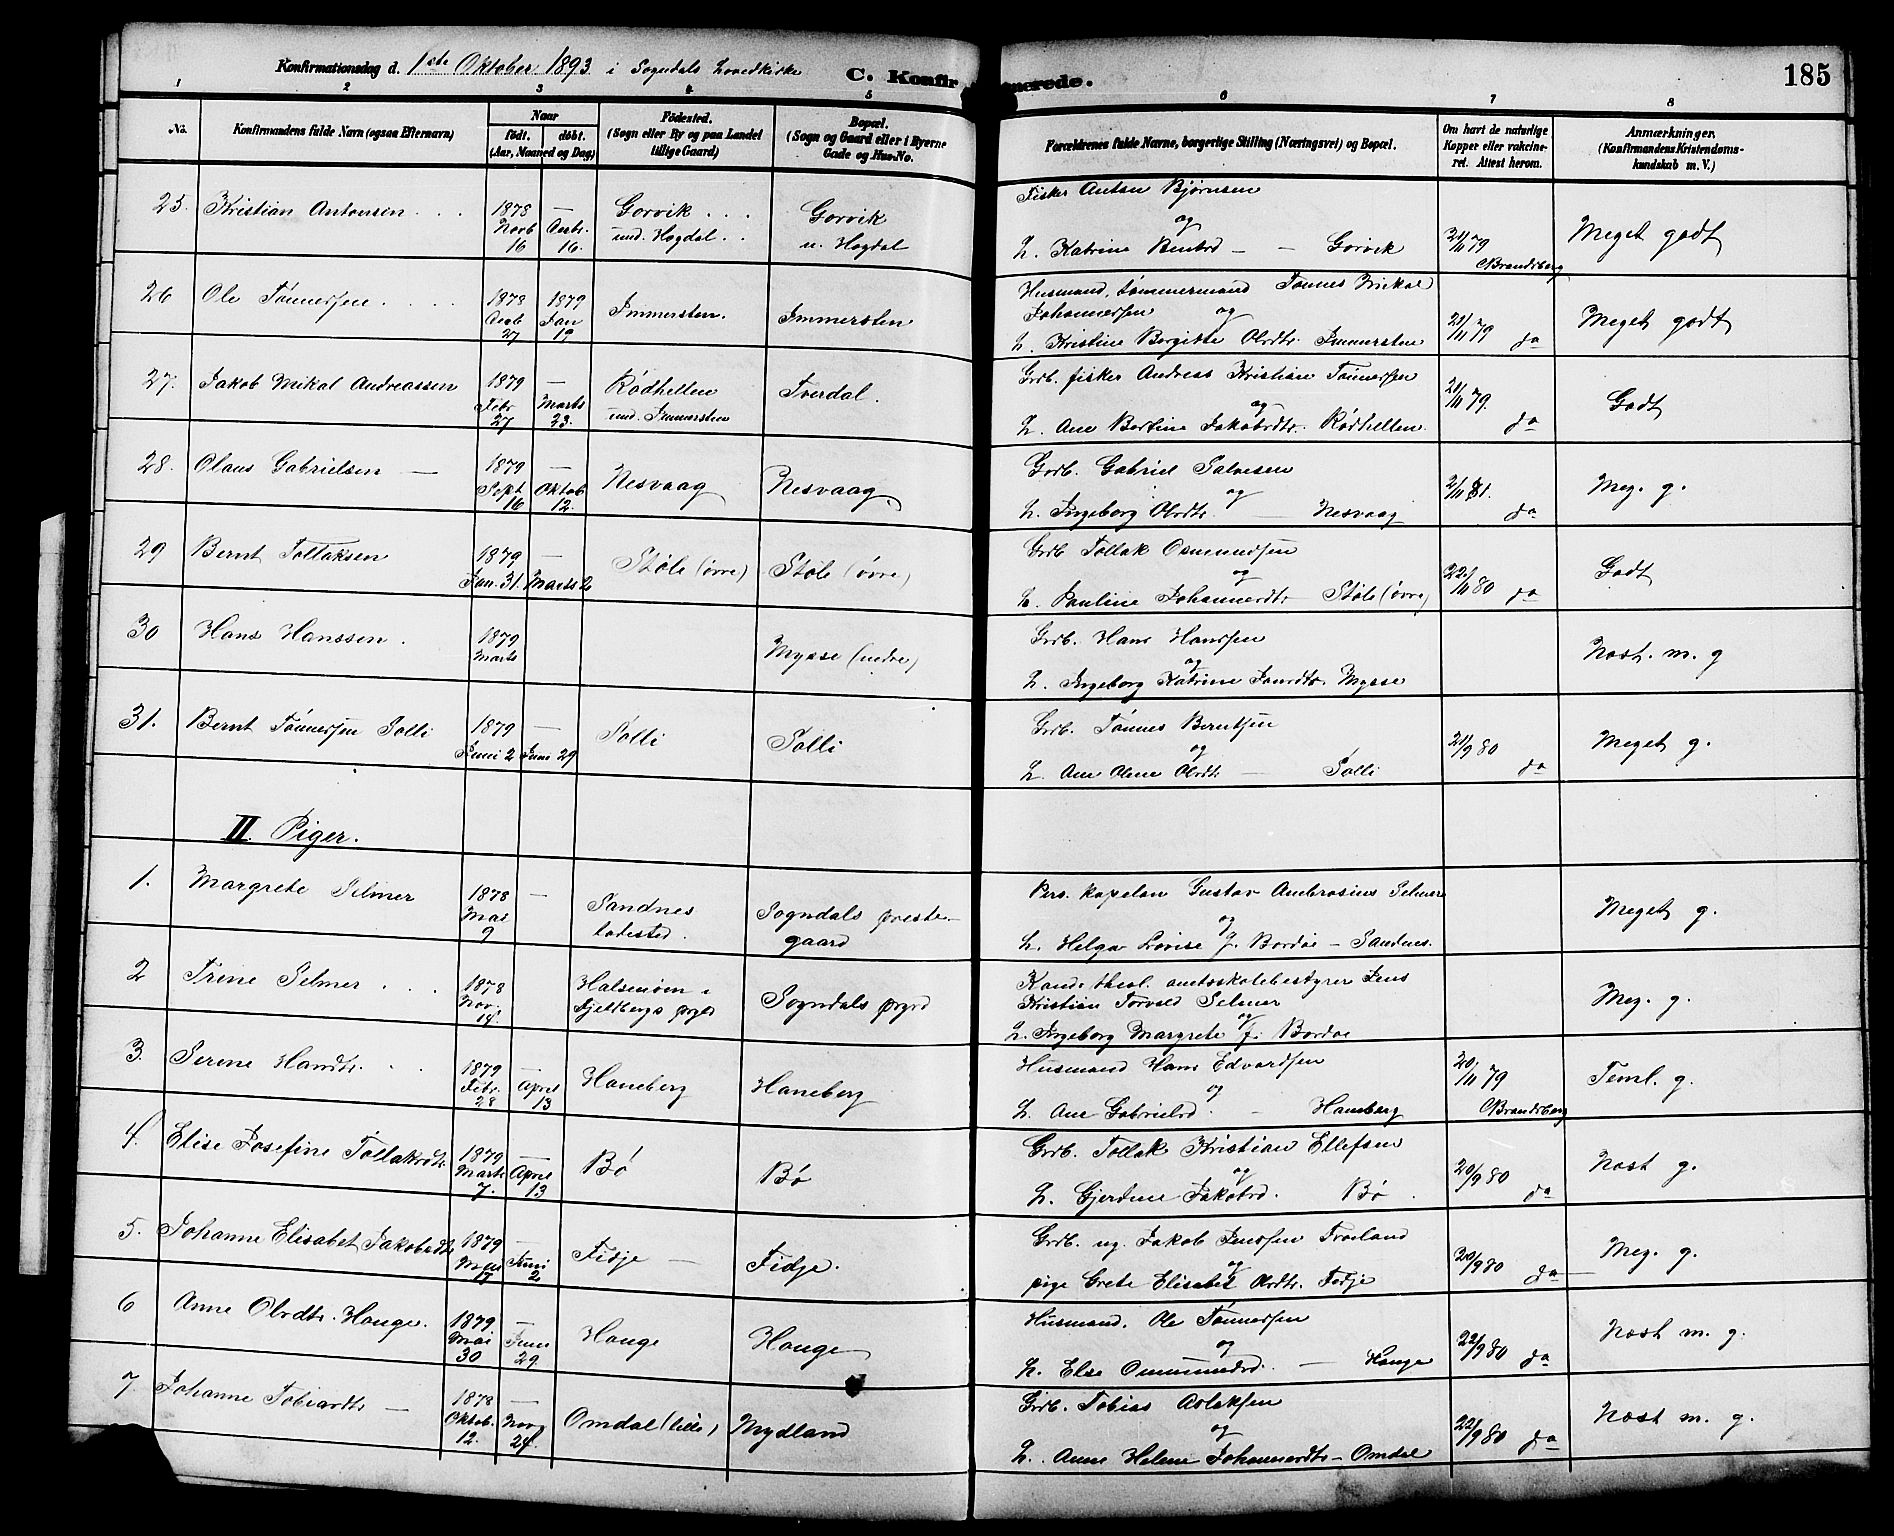 185
Konfirmationsdag d. 1ste Oktober 1893 i Sogndals Hovedkirke
C. Konfirmerede.
1 2 3 4 5 6 7 8
No.
Konfirmandens fulde Navn (ogsaa Efternavn)
Naar
födt. döbt.
(Aar, Maaned og Dag)
Födested.
(Sogn eller By og paa Landet
tillige Gaard)
Bopæl.
(Sogn og Gaard eller i Byerne
Gade og Hus-No.
Forældrenes fulde Navne, borgerlige Stilling (Næringsvei) og Bopæl.
Om havt de naturlige
Kopper eller vakcine-
ret. Attest herom.
Anmærkninger.
(Konfirmandens Kristendoms-
kundskab m. V.)
25. Kristian Antonsen . . .
1878 —
Novb Decbr.
16 16.
Gorvik . . .
und. Hogdal . .
Gorvik
u. Hogdal
Fisker Anton Bjørnsen
og
H. Katrine Berntsd — — Gorvik
21/11 79
Brandsberg
Meget godt
26 Ole Tönnessen . . . .
1878 1879
Decb Jan
27 19
Immersten.
Immersten
Husmand, tømmermand Tönnes Mikal
Johannessen og
H. Kristine Bergitte Olsdtr. Immersten
21/11 79 do
Meget godt
27. Jakob Mikal Andreassen
1879 —
Febr Marts
27 23.
Rødhellen
und. Immersten
Tverdal.
Grdb. fisker Andreas Kristian Tönnessen
og
H. Ane Bertine Jakobsdtr. Rødhellen.
21/11 79. do
Godt
28. Olaus Gabrielsen —
1879 —
Sept Oktob
16 12.
Nesvaag
Nesvaag
Grdb. Gabriel Salvesen
og
H. Ingeborg Olsdtr. — Nesvaag
2/11 81. do
Meg. g.
29 Bernt Tollaksen
1879 —
Jan. 31. Marts 2
Støle (övre)
Støle (övre)
Grdb Tollak Osmundsen
og
H. Pauline Johannesdtr Støle (övre)
22/11 80 do
Godt
30 Hans Hanssen .
1879
Marts
Mysse (nedre)
Grdb. Hans Hanssen
og
H. Ingeborg Katrine Jansdtr. Mysse
Nost. m. g
31. Bernt Tönnessen Solli
1879 —
Juni 2 Juni 29
Solli
Solli
Grdb. Tönnes Berntsen
og
H. Ane Olene Olsdtr — Solli
21/9 80 do
Meget g.
II. Piger.
1. Margrete Selmer
1878 —
Mai
9
Sandnes
ladested.
Sogndals preste-
gaard
Pers. kapelan Gustav Ambrosius Selmer
og
H. Helga Lovise f. Bordoe — Sandnes.
Meget g.
2 Trine Selmer . . .
1878
Nov.
14.
Halsenöen i
Fjellbergs prgld
Sogndals prgrd
Kand. theol. amtsskolebestyrer Jens
Kristian Torvald Selmer
og
H. Ingeborg Margrete f. Bordoe
Meg. g.
3. Serine Hansdtr. . .
1879 —
Febr. April
28 13
Haneberg
Haneberg
Husmand Hans Edvardsen
og
H. Ane Gabrielsd. — Haneberg
20/11 79
Brandsberg
Teml. g.
4. Elise Josefine Tollaksdtr
1879 —
Marts April
7. 13
Bø
Bø
Grdb. Tollak Kristian Ellefsen
og
H. Gjerdine Jakobsd. Bø .
20/9 80 do
Nost g.
5. Johanne Elisabet Jakobsdtr
1879 —
Mai Juni
17 2
Fidje —
Fidje.
Grdb. ug. Jakob Jenssen Froeland
og
pige Grete Elisabet Olsdtr. Fidje
20/9 80 do —
Meg. g.
6 Anne Olsdtr. Hauge.
1879 —
Mai Juni
30 29
Hauge
Hauge
Husmand. Ole Tönnessen
og
H. Else Ommundsd. — Hauge
22/9 80 do
Nost m. g.
7. Johanne Tobiasdtr —
1878 —
Oktob. Nov
12. 24.
Omdal (lille)
Mydland
Grdb. Tobias Aslaksen
og
H. Anne Helene Johannesdtr — Omdal
22/9 80 do
Nost m. g.